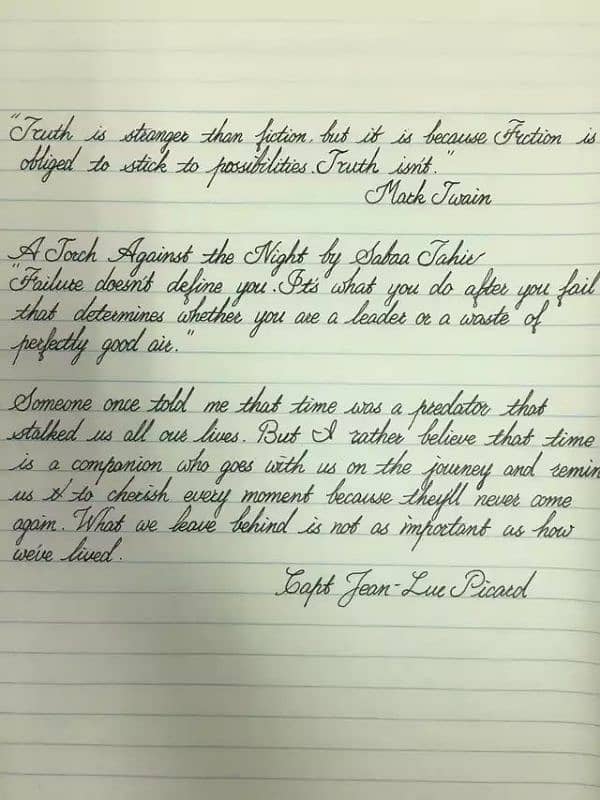 "Truth is stranger than fiction, but it is because Fiction is
obliged to stick to possibilities. Truth isn't."
Mark Twain
A Torch Against the Night by Sabaa Tahir
"Failure doesn't define you. It's what you do after you fail
that determines whether you are a leader or a waste of
perfectly good air."
Someone once told me that time was a predator that
stalked us all our lives. But I rather believe that time
is a companion who goes with us on the journey and remin
us to cherish every moment because they'll never come
again. What we leave behind is not as important as how
we've lived.
Capt Jean-Luc Picard